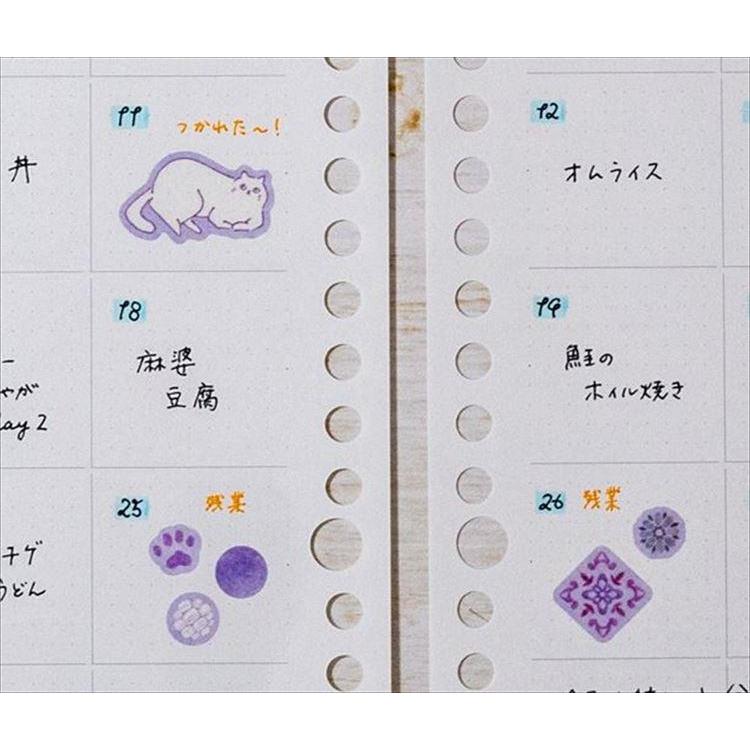 11
つかれた〜!
丼
18
麻婆
豆腐
やが
Day 2
25
残業
チゲ
うどん
12
オムライス
19
鮭の
ホイル焼き
26
残業